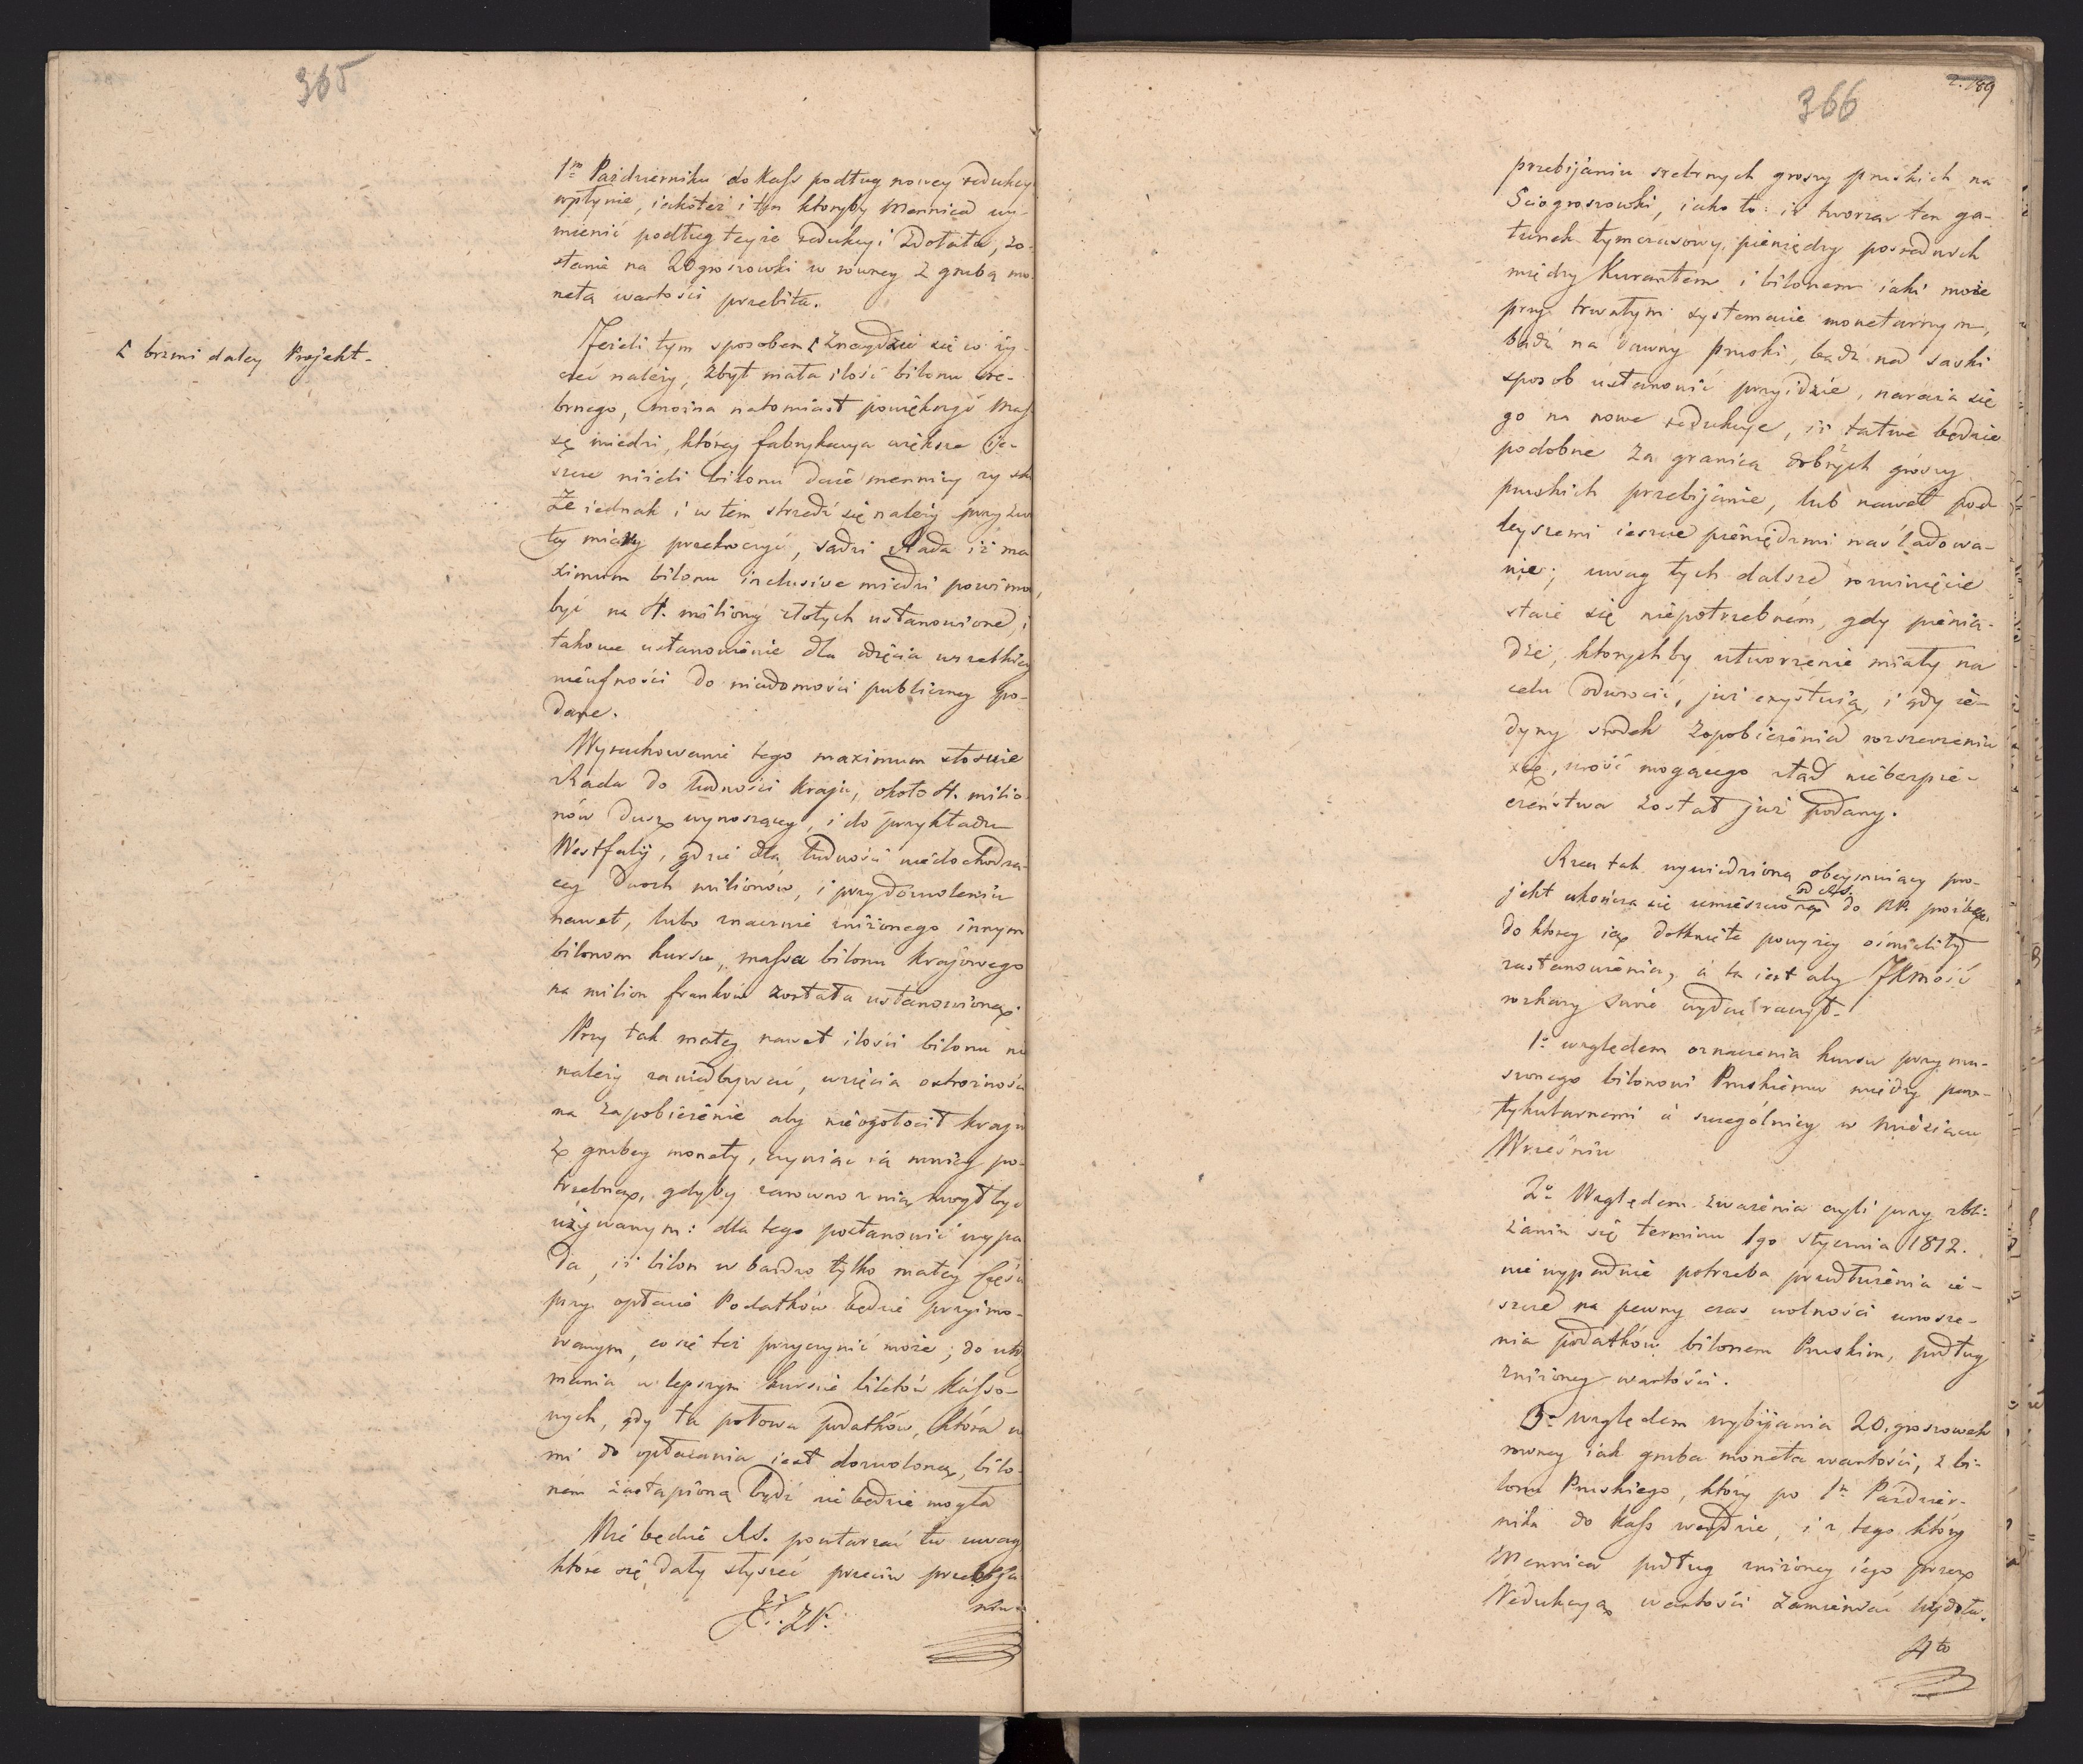 365
1m Październiku do Kass podług nowey redukcyi
wpłynie, iakoteż i ten ktoryby Mennica wy-
mienić podług teyże redukcyi zdołała, zo-
stanie na 20groszowki w rowney z grubą mo-
netą wartości przebita.
⁅ brzmi daley Projekt.
Jeżeli tym sposobem ⁅ znaydzie się w ży-
czeć należy, zbyt mała ilość bilonu sre-
brnego, można natomiast powiększyć Mas-
sę miedzi, którey fabrykacya większe ie-
szcze niżeli bilonu daie mennicy zysk
Że iednak i w tem strzedz się należy
tey miary przekroczyć, sądzi Rada iż ma-
ximum bilonu inclusive miedzi powinno
być na 4. miliony złotych ustanowione, i
takowe ustanowienie dla odjęcia wszelkiey
nieufności do wiadomości publiczney po-
dane.
Wyrachowanie tego maximum stosuie
Rada do ludności kraju, około 4. milio-
nów dusz wynoszącey, i do przykładu
Westfalij, gdzie dla ludności niedochodzą-
cey dwoch milionów, i przy dozwoleniu
nawet, lubo znacznie zniżonego innym
bilonom kursu, massa bilonu krajowego
na milion franków została ustanowioną.
Przy tak małey nawet ilości bilonu nie
należy zaniedbywać, użycia ostrożności
na zapobieżenie aby nieogołocił kraju
z grubey monety, czyniąc ią mniey po-
trzebną, gdyby zarowno z nią mógł być
używanym: dla tego postanowić wypa-
da, iż bilon w bardzo tylko małey części
przy opłacie Podatków będzie przyimo-
wanym, co się też przyczynić może, do utrzy
mania w lepszym kursie biletów Kasso-
wych, gdy ta połowa podatków, która
mi do opłacania iest dozwoloną, bilo-
nem zastąpioną bydź nie będzie mogła
Nie będzie RS. powtarzać tu uwag
które się dały słyszeć przeciw przebija
niu
366
2. 189
przebijaniu srebrnych groszy pruskich na
5ciogroszowki, iako to: iż tworzą ten ga-
tunek tymczasowy pieniędzy posrednich
między Kurantem i bilonem iaki może
przy trwałym systemacie monetarnym,
bądź na dawny pruski, bądź na saski
sposob ustanowić przyidzie, naraża się
go na nowe redukcye, iż łatwe będzie
podobne za granicą drobnych groszy
pruskich przebijanie, lub nawet pod-
leyszemi ieszcze pieniędzmi naśladowa-
nie; uwag tych dalsze rozwinięcie
staie się niepotrzebnem, gdy pienią-
dze, ktorychby utworzenie miały na
celu odwrocić, już exystuią, i gdy ie-
dyny srodek zapobieżenia rozszerzeniu
się, mogącego ztąd niebezpie-
czeństwa został już podany.
Rzecz tak wywiedzioną obeymuiący pro-
jekt ukończa się umieszczoną od RS. do NP. prośbą,
do ktorey ią dotknięte powyżey ośmieliły
zastanowienia, a ta iest aby JKMość
rozkazy swoie wydać raczył.
1o względem oznaczenia kursu przymu-
szonego bilonowi Pruskiemu między par-
tykularnemi a szczególniey w Miesiącu
Wrześniu
2o Względem zważenia czyli przy zbli-
żaniu się terminu 1go stycznia 1812.
nie wypadnie potrzeba przedłużenia ie-
szcze na pewny czas wolności wnosze-
nia podatków bilonem Pruskim, podług
zniżoney wartości.
3o względem wybijania 20. groszowek
rowney iak gruba moneta wartości, z bi-
lonu Pruskiego, który po 1m Paździer-
nika do Kass weydzie, i z tego który
Mennica podług zniżoney iego przez
Redukcyą wartości zamieniać wydoła.
4to